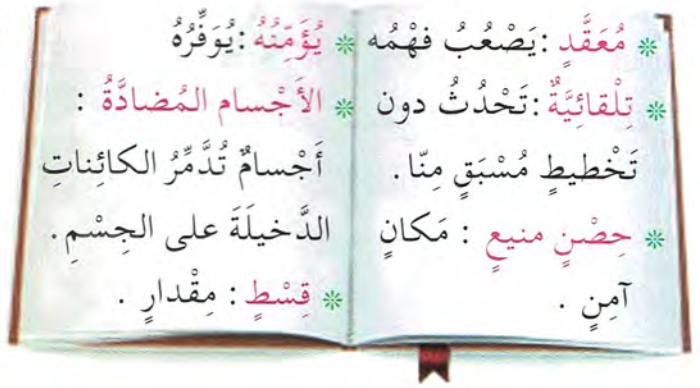 ❊ مُعَقَّدٍ : يَصْعُبُ فهْمُه
❊ تِلْقائِيَّةٌ : تَحْدُثُ دون
تَخْطيطٍ مُسْبَقٍ مِنّا .
❊ حِصْنٍ منيعٍ : مَكانٍ
آمِنٍ .
❊ يُؤَمِّنُهُ : يُوَفِّرُهُ
❊ الأَجْسام المُضادَّةُ :
أَجْسامٌ تُدَمِّرُ الكائِناتِ
الدَّخيلَةَ على الجِسْمِ .
❊ قِسْطٍ : مِقْدارٍ .